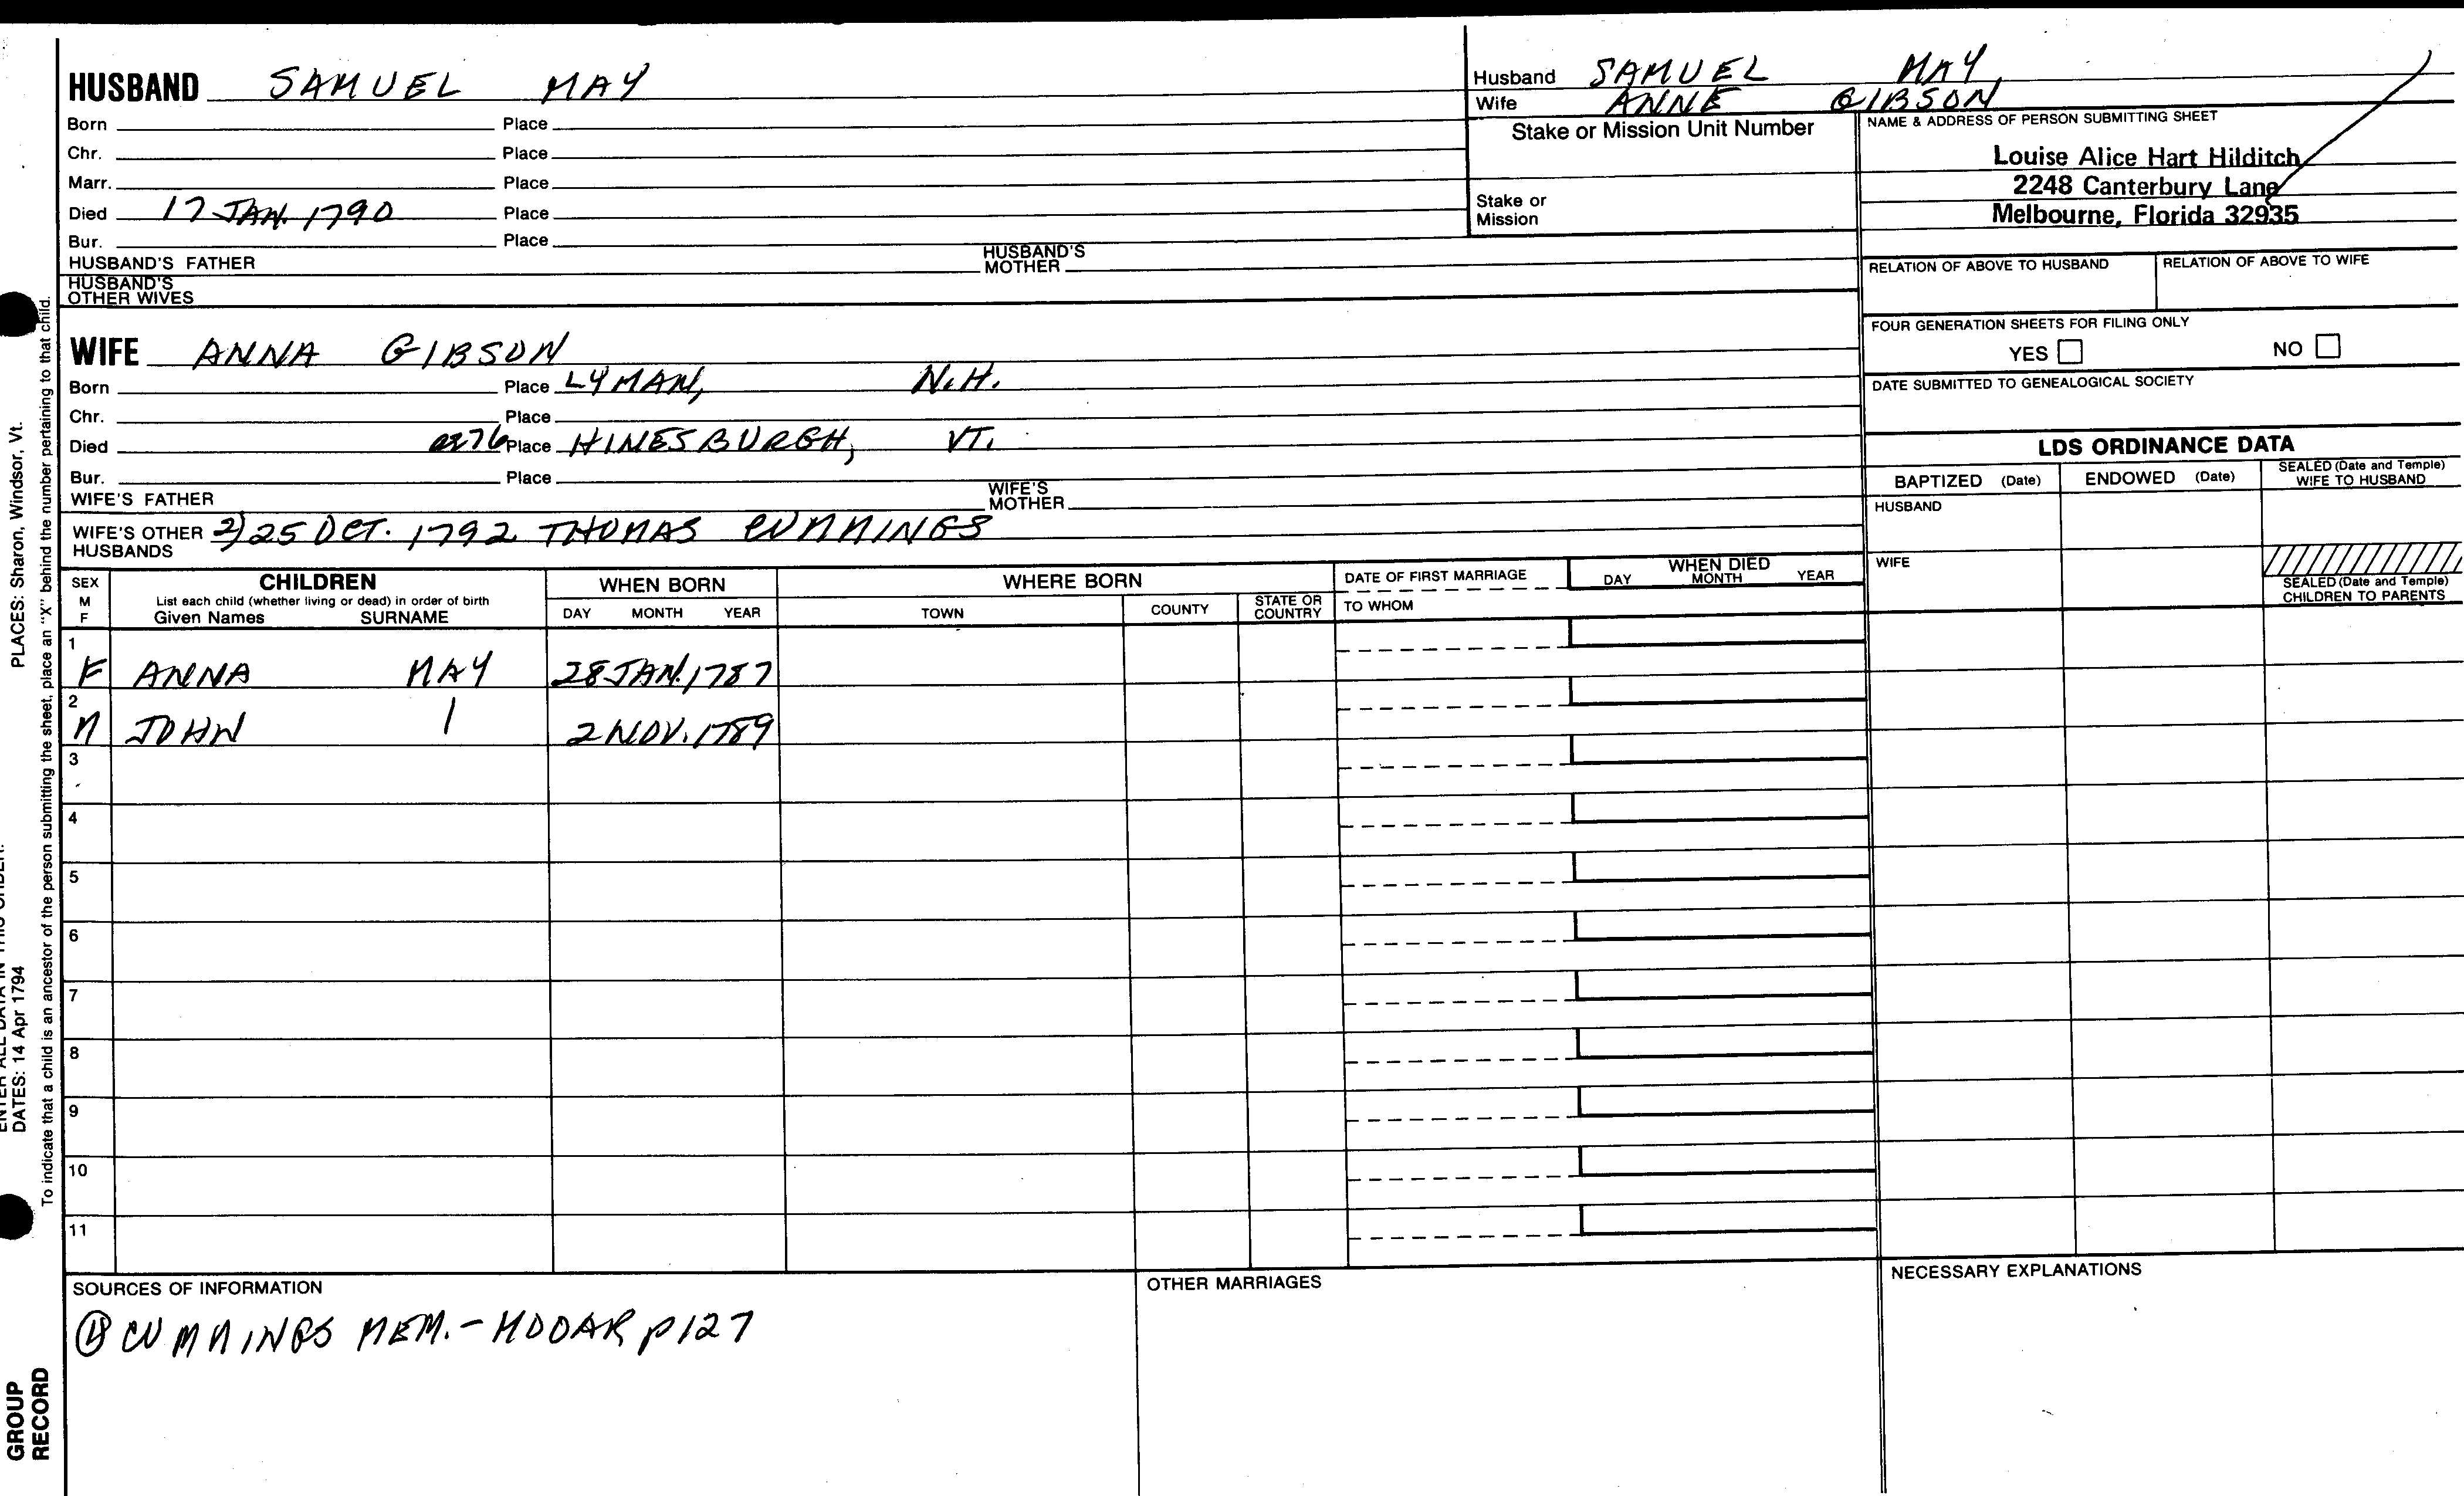 HUSBAND SAMUEL MAY
Born Place
Chr. Place
Marr. Place
Died 17 JAN. 1790 Place
Bur. Place
HUSBAND'S FATHER HUSBAND'S MOTHER
HUSBAND'S OTHER WIVES
Husband SAMUEL MAY
Wife ANNE GIBSON
Stake or Mission Unit Number
Stake or Mission
NAME & ADDRESS OF PERSON SUBMITTING SHEET
Louise Alice Hart Hilditch
2248 Canterbury Lane
Melbourne, Florida 32935
RELATION OF ABOVE TO HUSBAND RELATION OF ABOVE TO WIFE
FOUR GENERATION SHEETS FOR FILING ONLY
YES NO
DATE SUBMITTED TO GENEALOGICAL SOCIETY
WIFE ANNA GIBSON
Born Place LYMAN, N.H.
Chr. Place
Died Place HINESBURGH, VT.
Bur. Place
WIFE'S FATHER WIFE'S MOTHER
WIFE'S OTHER HUSBANDS 2) 25 OCT. 1792 THOMAS CUMMINGS
LDS ORDINANCE DATA
BAPTIZED (Date) ENDOWED (Date) SEALED (Date and Temple) WIFE TO HUSBAND
HUSBAND
WIFE
SEALED (Date and Temple) CHILDREN TO PARENTS
SEX M F
CHILDREN
List each child (whether living or dead) in order of birth
Given Names SURNAME
WHEN BORN
DAY MONTH YEAR
WHERE BORN
TOWN COUNTY STATE OR COUNTRY
DATE OF FIRST MARRIAGE
TO WHOM
WHEN DIED
DAY MONTH YEAR
1 F ANNA MAY 28 JAN. 1787
2 M JOHN 2 NOV. 1789
3
4
5
6
7
8
9
10
11
SOURCES OF INFORMATION
CUMMINGS MEM.- MOOAR p127
OTHER MARRIAGES
NECESSARY EXPLANATIONS
PLACES: Sharon, Windsor, Vt.
DATES: 14 Apr 1794
To indicate that a child is an ancestor of the person submitting the sheet, place an "X" behind the number pertaining to that child.
GROUP
RECORD